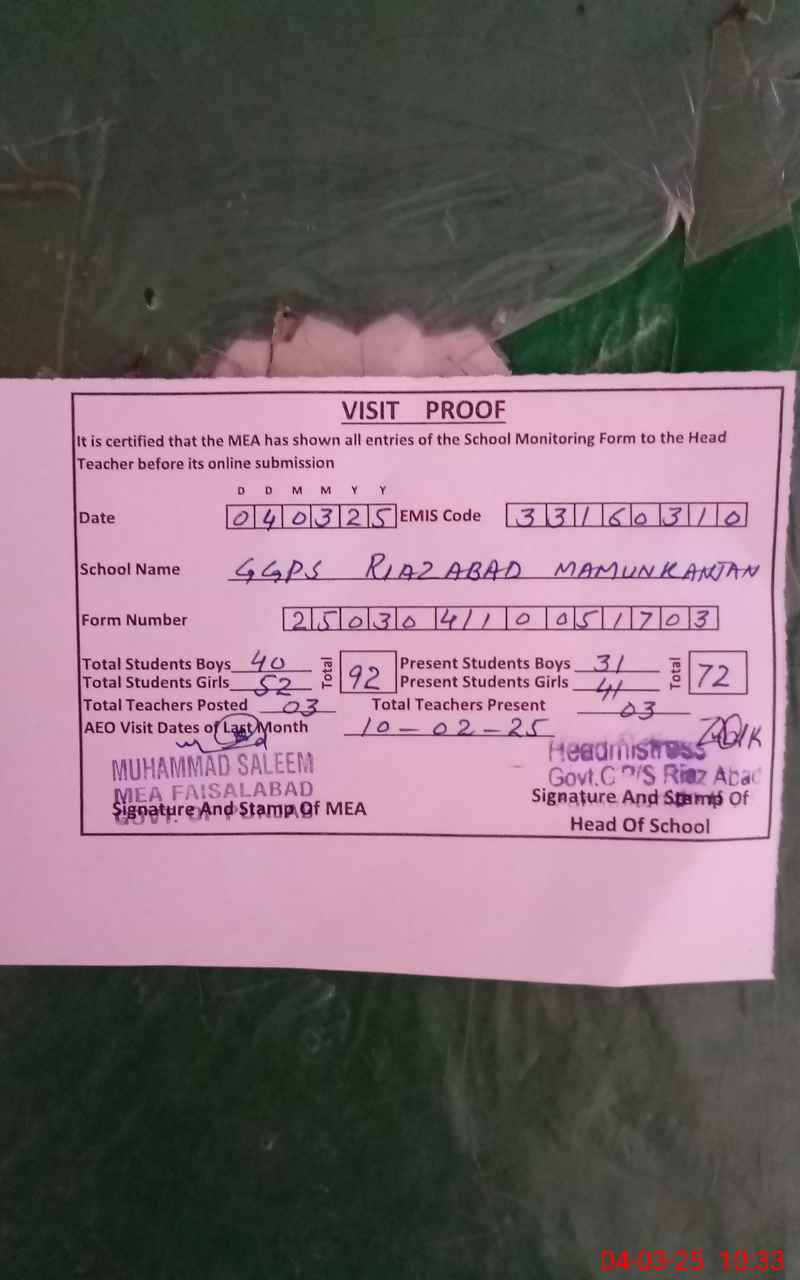 VISIT PROOF
It is certified that the MEA has shown all entries of the School Monitoring Form to the Head
Teacher before its online submission
D D M M Y Y
Date 040325 EMIS Code 33160310
School Name GGPS RIAZABAD MAMUNKANJAN
Form Number 250304110051703
Total Students Boys 40 Total 92 Present Students Boys 31 Total 72
Total Students Girls 52 Present Students Girls 41
Total Teachers Posted 03 Total Teachers Present 03
AEO Visit Dates of Last Month 10-02-25
MUHAMMAD SALEEM Headmistress
MEA FAISALABAD Govt.G P/S Riaz Abad
Signature And Stamp Of MEA Signature And Stamp Of
GOVT. OF PUNJAB Head Of School
04-03-25 10:33